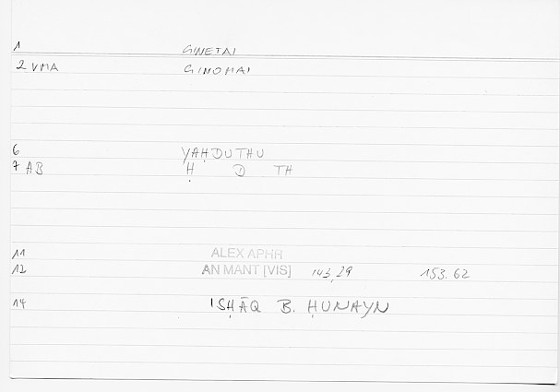 1 GINETAI
2 VMA GINOMAI
6 YAḤDUTHU
7 AB Ḥ D TH
11 ALEX APHR
12 AN MANT [VIS] 143,29 153.62
14 ISḤĀQ B. ḤUNAYN